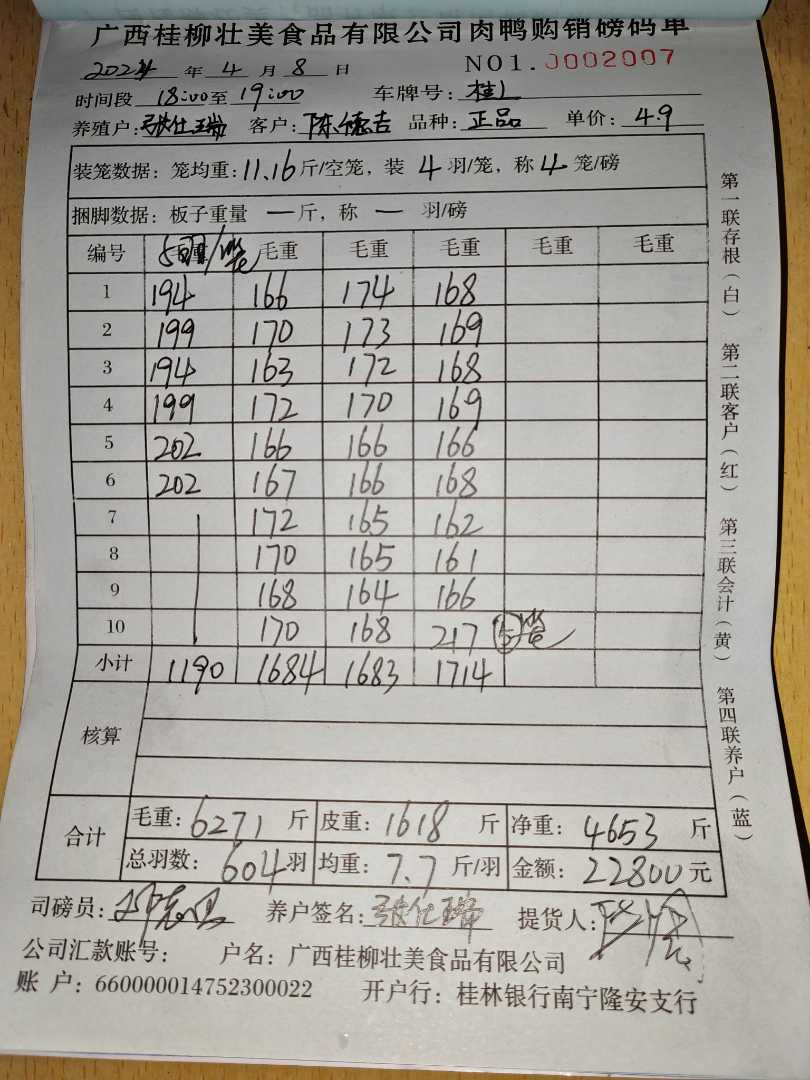 广西桂柳壮美食品有限公司肉鸭购销磅码单
2024 年 4 月 8 日 NO1.0002007
时间段 18:00至 19:00 车牌号: 桂
养殖户: 张仕瑞 客户: 陈德吉 品种: 正品 单价: 4.9
装笼数据: 笼均重: 11.16 斤/空笼, 装 4 羽/笼, 称 4 笼/磅
捆脚数据: 板子重量 一 斤, 称 一 羽/磅
编号 5羽/笼 毛重 毛重 毛重 毛重 毛重
1 194 166 174 168
2 199 170 173 169
3 194 163 172 168
4 199 172 170 169
5 202 166 166 166
6 202 167 166 168
7 172 165 162
8 170 165 161
9 168 164 166
10 170 168 217 5笼
小计 1190 1684 1683 1714
核算
合计 毛重: 6271 斤 皮重: 1618 斤 净重: 4653 斤
总羽数: 604 羽 均重: 7.7 斤/羽 金额: 22800 元
司磅员: 养户签名: 张仕瑞 提货人:
公司汇款账号: 户名: 广西桂柳壮美食品有限公司
账 户: 660000014752300022 开户行: 桂林银行南宁隆安支行
第一联存根(白) 第二联客户(红) 第三联会计(黄) 第四联养户(蓝)